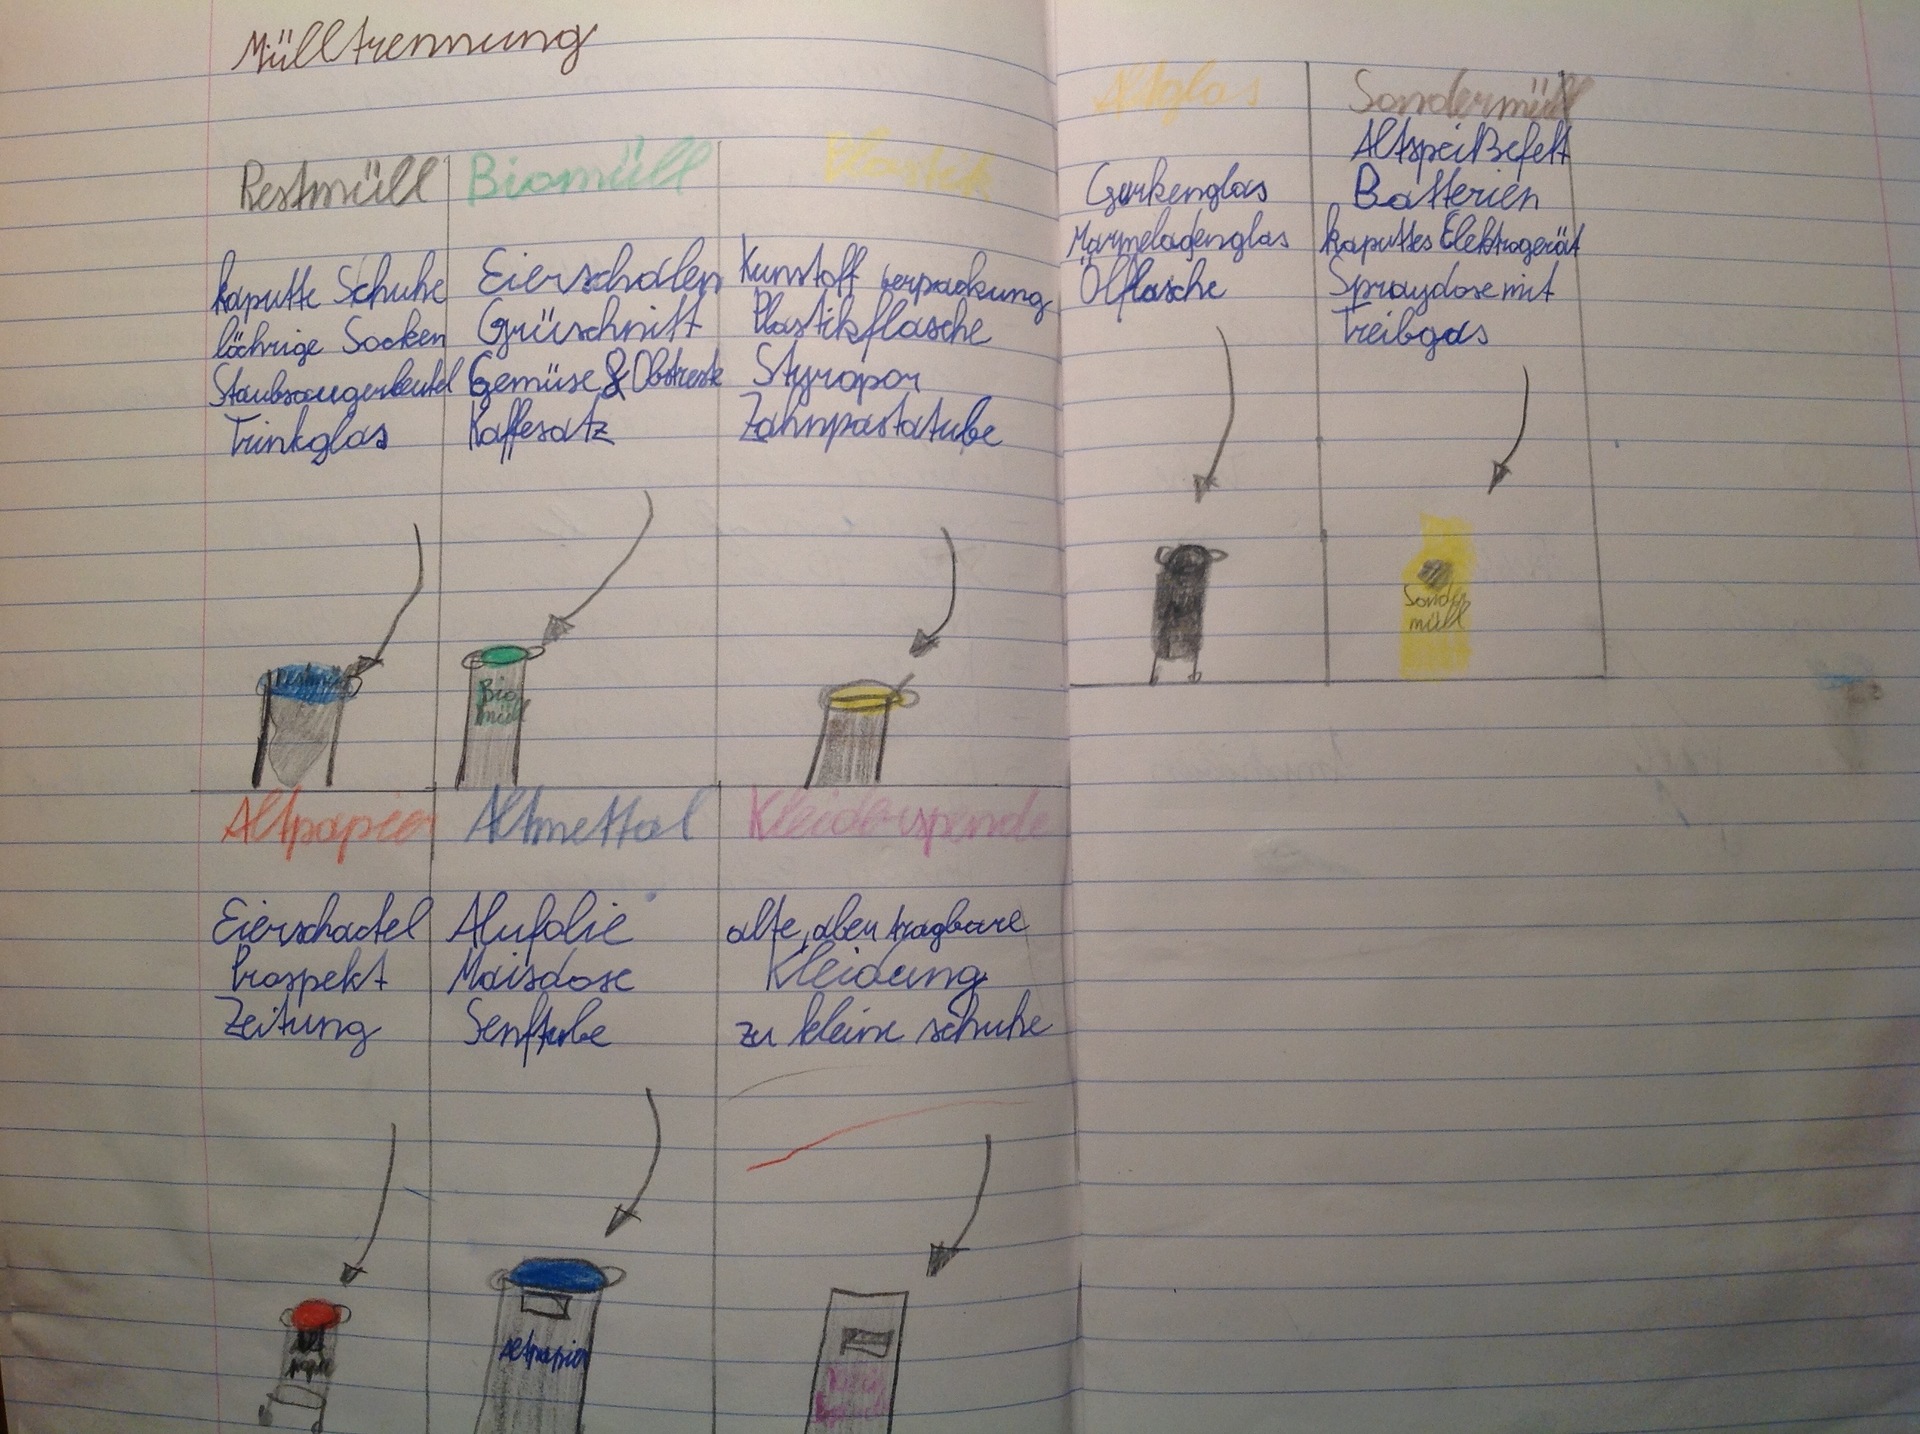 Mülltrennung
Restmüll
kaputte Schuhe
löchrige Socken
Staubsaugerbeutel
Trinkglas
Restmüll
Biomüll
Eierschalen
Grüschnitt
Gemüse & Obstreste
Kaffesatz
Bio
müll
Plastik
Kunstoff verpackung
Plastikflasche
Styropor
Zahnpastatube
Altpapier
Eierschactel
Prospekt
Zeitung
Alt
papier
Altmettal
Alufolie
Maisdose
Senftube
Altpapier
Kleiderspende
alte, aber tragbare
Kleidung
zu kleine schuhe
Altglas
Gurkenglas
Marmeladenglas
Ölflasche
Sondermüll
AltspeiBefett
Batterien
kaputtes Elektrogerät
Spraydose mit
Treibgas
Sonder
müll